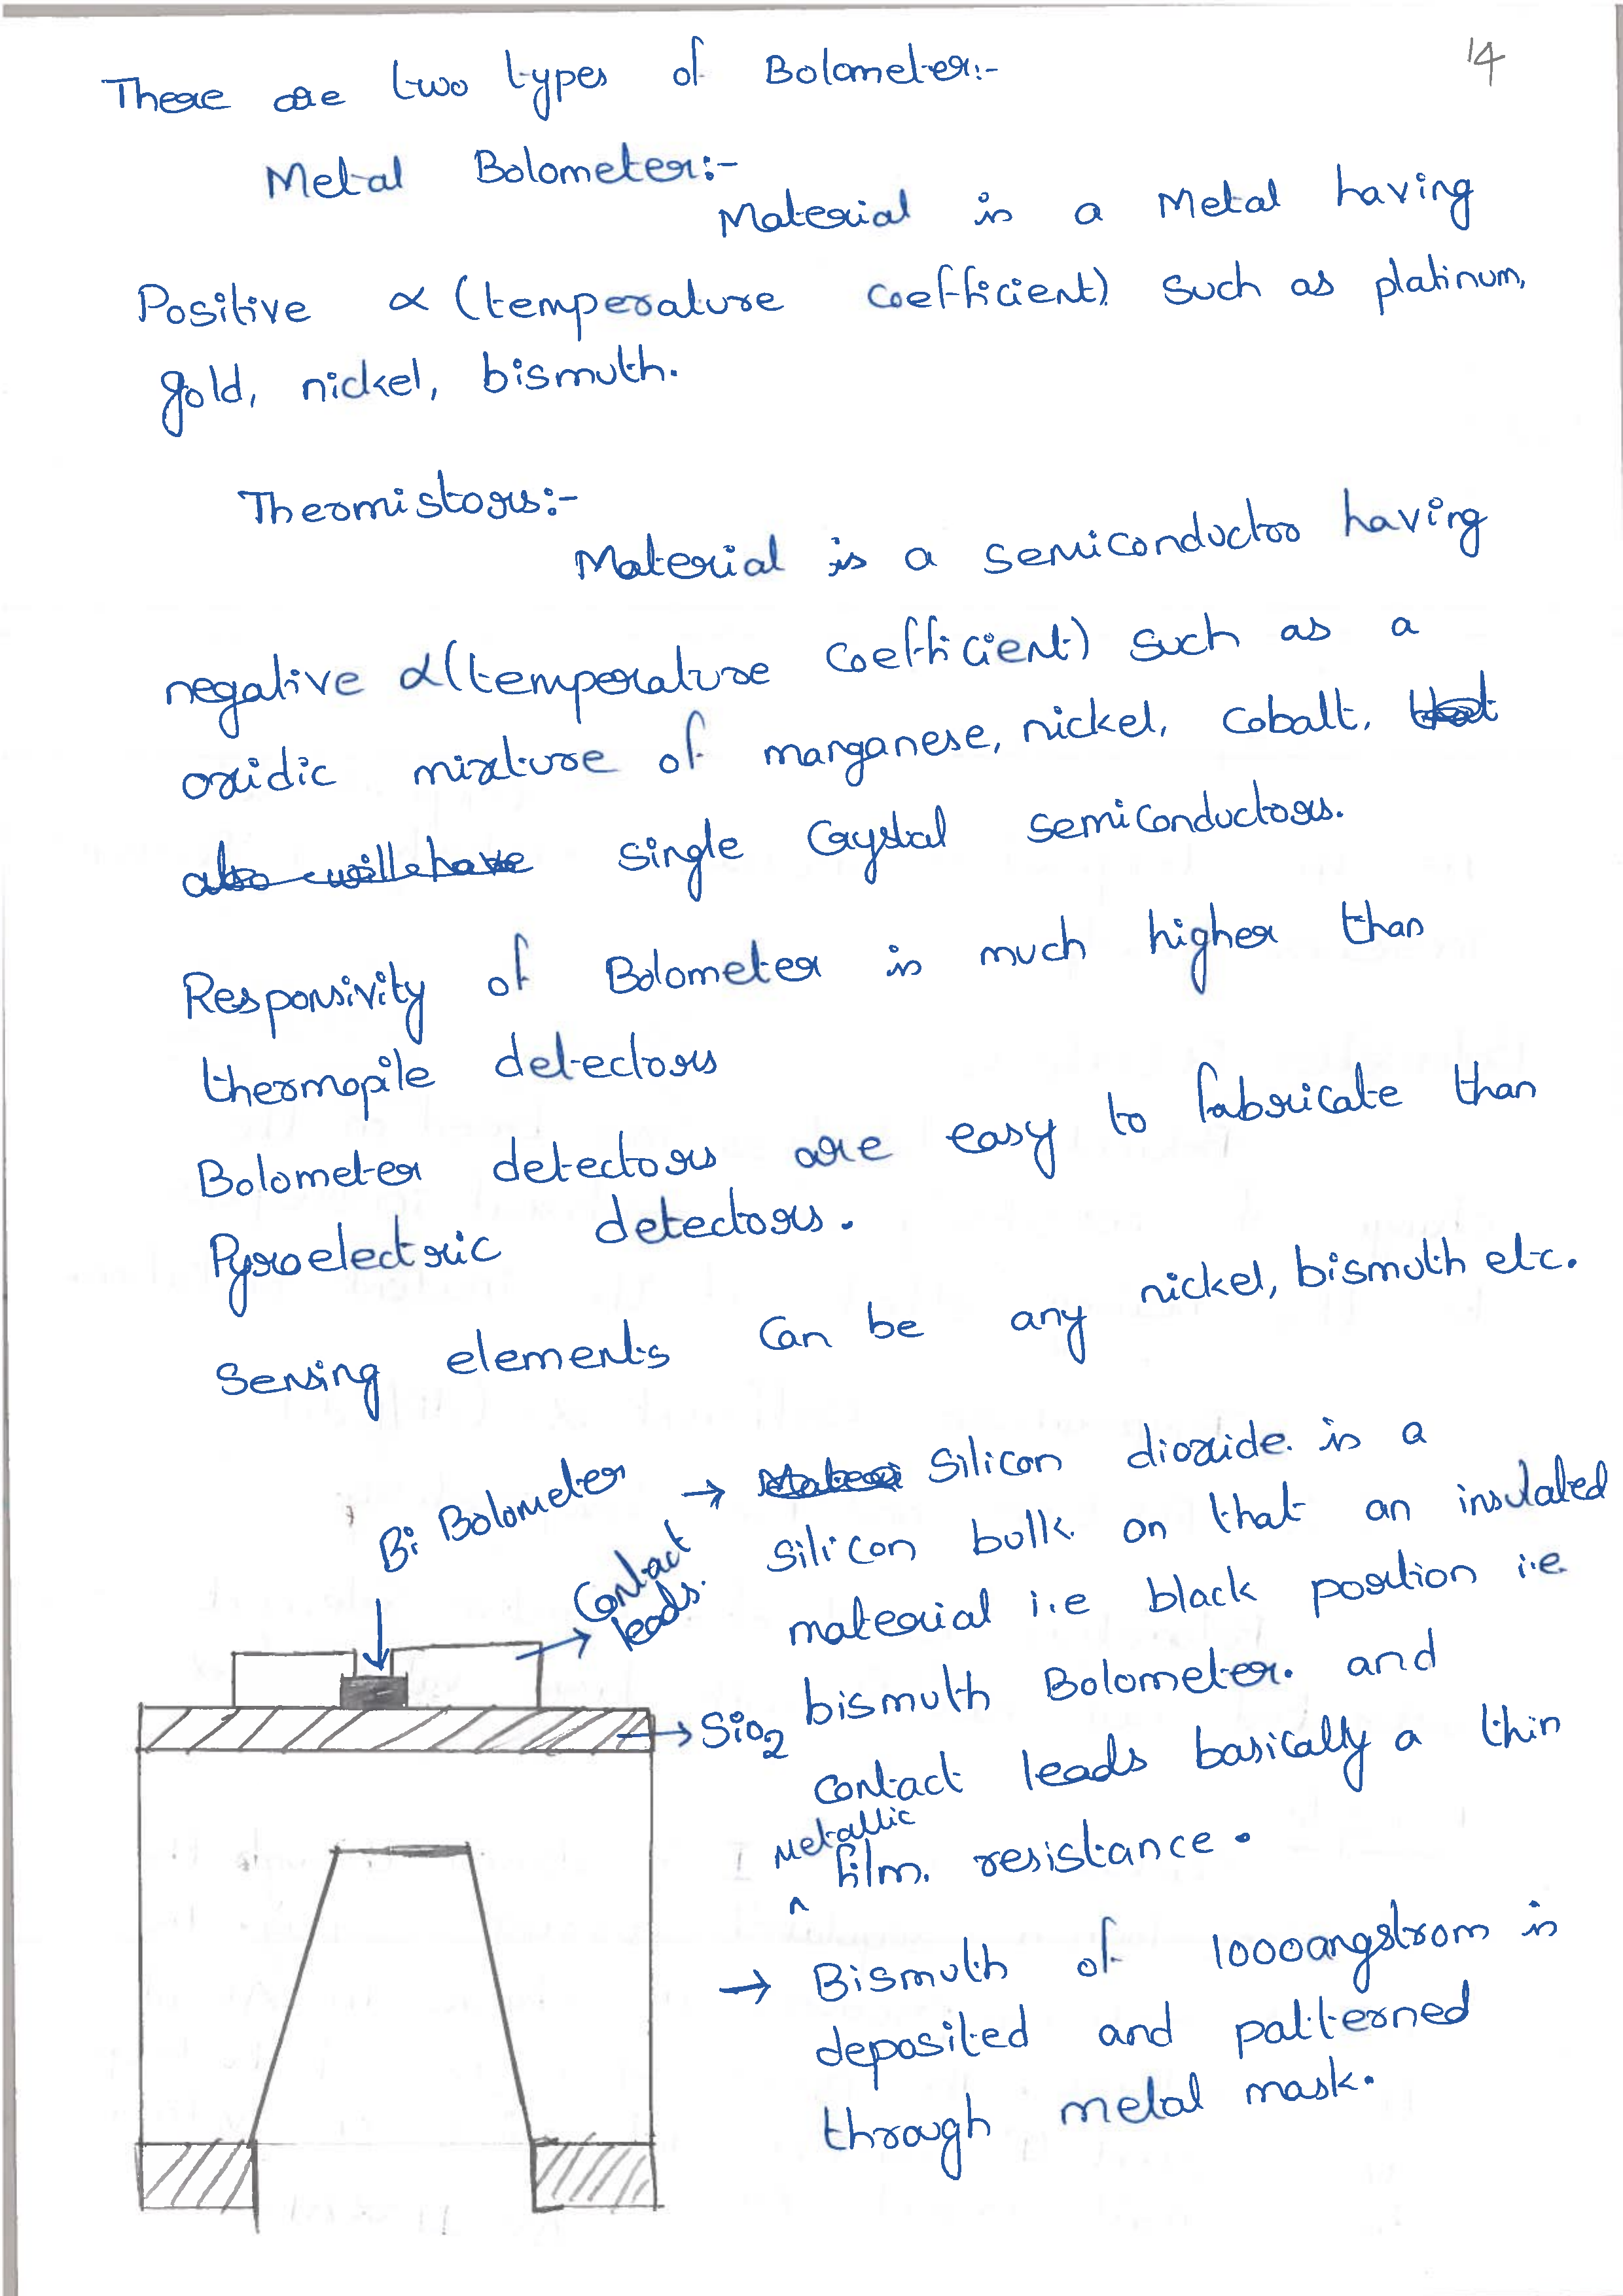 14
There are two types of Bolometer:-
Metal Bolometer:-
Material is a Metal having
Positive α (temperature coefficient) such as platinum,
gold, nickel, bismuth.
Thermistors:-
Material is a semiconductor having
negative α (temperature coefficient) such as a
oxidic mixture of manganese, nickel, cobalt,
also will have single Crystal semiconductors.
Responsivity of Bolometer is much higher than
thermopile detectors
Bolometer detectors are easy to fabricate than
Pyroelectric detectors.
Sensing elements Can be any nickel, bismuth etc.
Bi Bolometer
Contact
leads.
SiO2
→ Silicon dioxide. is a
Silicon bulk. on that an insulated
material i.e black position i.e
bismuth Bolometer. and
Contact leads basically a thin
Metallic
film. resistance.
→ Bismuth of 1000angstrom is
deposited and patterned
through metal mask.